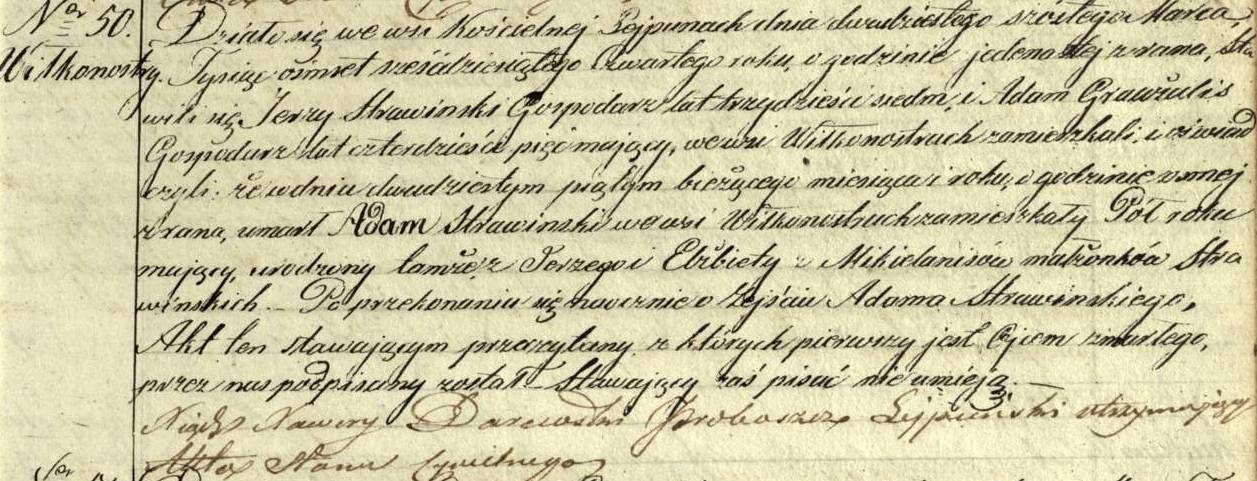 Ner 50. Działo się we wsi Kościelnej Lejpunach dnia dwudziestego szóstego Marca,
Witkonostry. Tysiąc ośmset sześćdziesiątego Czwartego roku, o godzinie jedenastej zrana, Sta
wili się Jerzy Strawinski Gospodarz lat trzydzieści siedm, i Adam Grawżulis
Gospodarz lat czterdzieści pięć mający, we wsi Witkonostrach zamieszkali, i oświad
czyli: że w dniu dwudziestym piątym bieżącego miesiąca i roku, o godzinie osmej
zrana, umarł Adam Strawinski we wsi Witkonostrach zamieszkały Pół roku
mający, urodzony tamże z Jerzego i Elżbiety z Mikielanisów małżonków Stra
winskich. – Po przekonaniu się naocznie o zejściu Adama Strawinskiego,
Akt ten stawającym przeczytany, z których pierwszy jest Ojcem zmarłego,
przez nas podpisany został – Stawający zaś pisać nie umieją. –
Xiądz Xawery Proboszcz Lejpuński utrzymujący
Akta Stanu Cywilnego
Ner